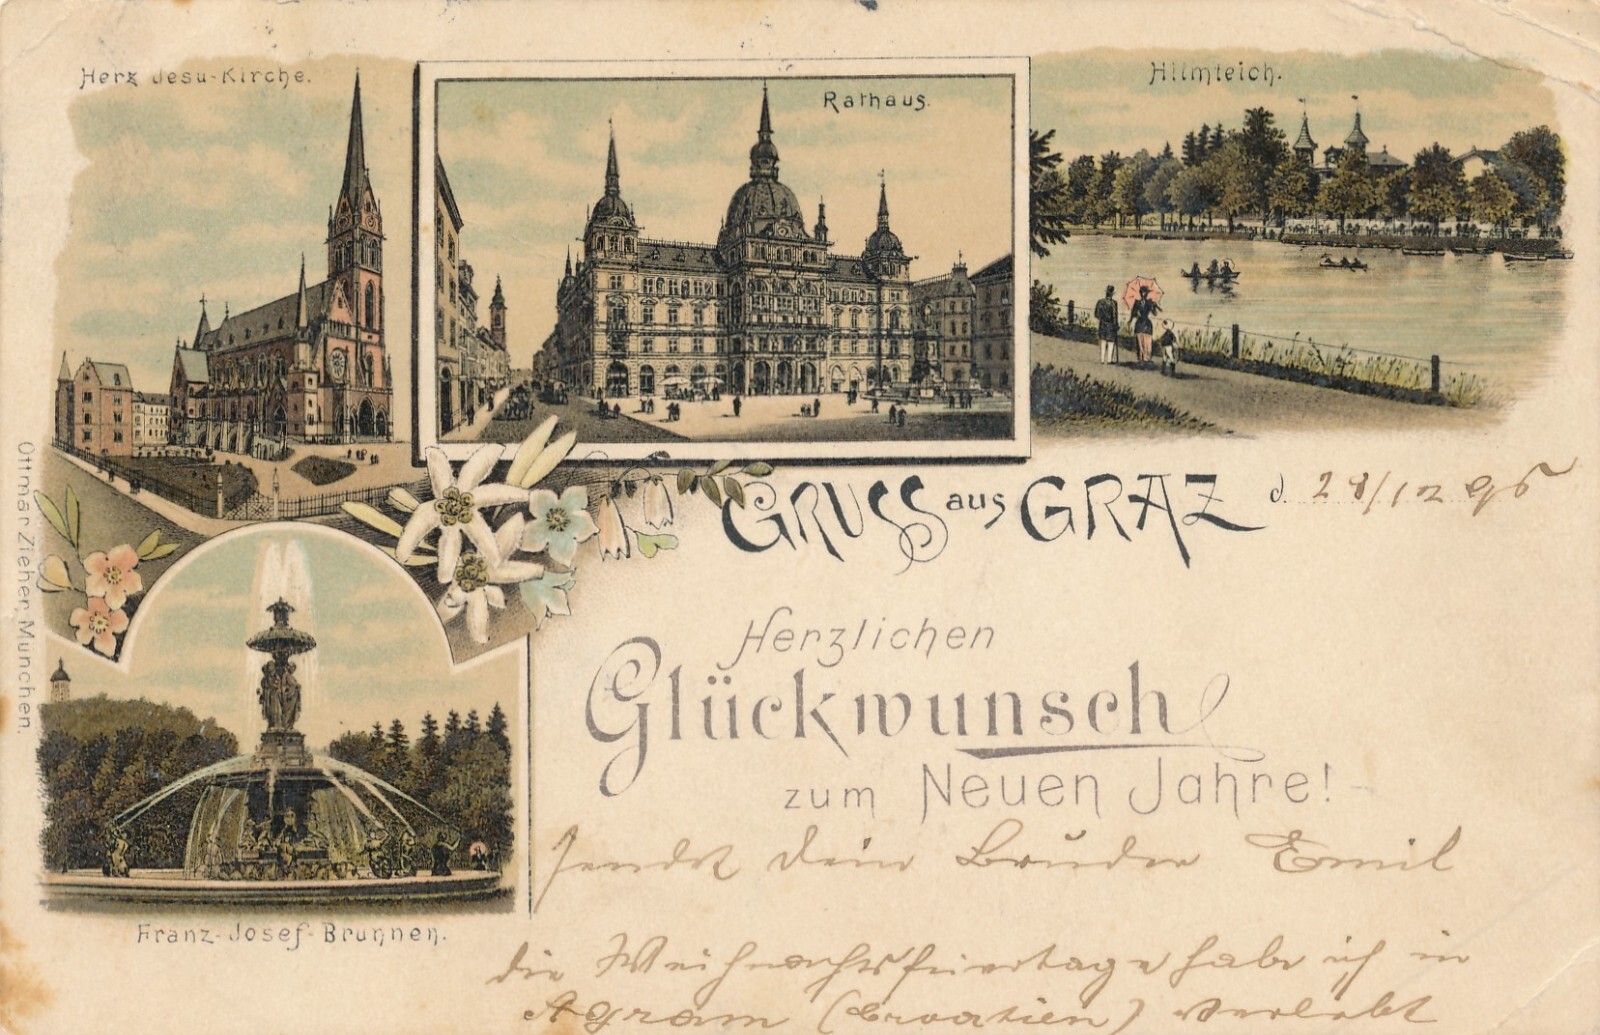 Herz Jesu-Kirche.
Rathaus.
Hilmteich.
Ottmar Zieher, München.
GRUSS aus GRAZ d. 28/12 96
Herzlichen
Glückwunsch
zum Neuen Jahre!
sendet dein Bruder Emil
Franz-Josef-Brunnen.
die Weihnachtsfeiertage habe ich in
Agram (Croatien) verlebt